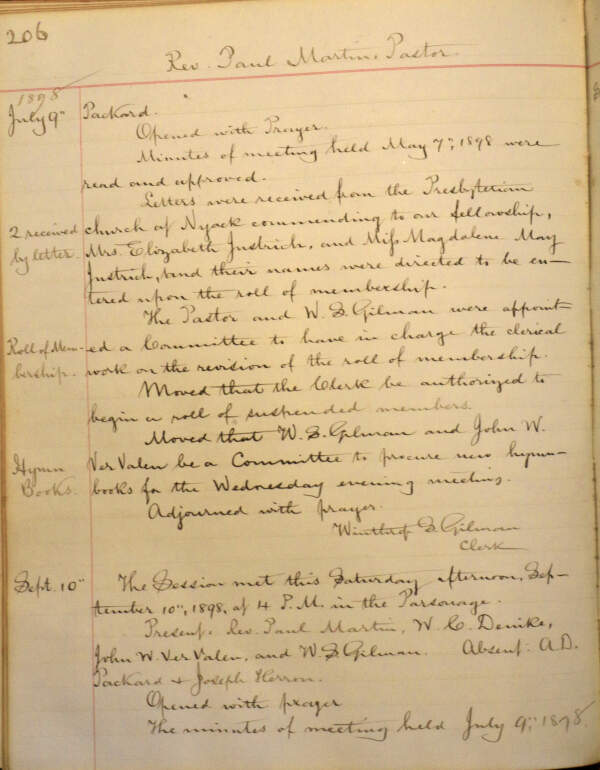 206
Rev. Paul Martin, Pastor.
1898
July 9" Packard.
Opened with Prayer.
Minutes of meeting held May 7", 1898 were
read and approved.
Letters were received from the Presbyterian
2 received church of Nyack commending to our fellowship,
by letter. Mrs. Elizabeth Justrich, and Miss Magdalene May
Justrich, and their names were directed to be en-
tered upon the roll of membership.
The Pastor and W. S. Gilman were appoint-
Roll of Mem- ed a Committee to have in charge the clerical
bership. work on the revision of the roll of membership.
Moved that the Clerk be authorized to
begin a roll of suspended members.
Moved that W. S. Gilman and John W.
Hymn Ver Valen be a Committee to procure new hymn-
Books. books for the Wednesday evening meeting.
Adjourned with prayer.
Winthrop S. Gilman
Clerk
Sept. 10" The Session met this Saturday afternoon, Sep-
tember 10", 1898, at 4 P.M. in the Parsonage.
Present: Rev. Paul Martin, W. C. Denike,
John W. Ver Valen, and W. S. Gilman. Absent: A. D.
Packard & Joseph Herron.
Opened with prayer
The minutes of meeting held July 9", 1898